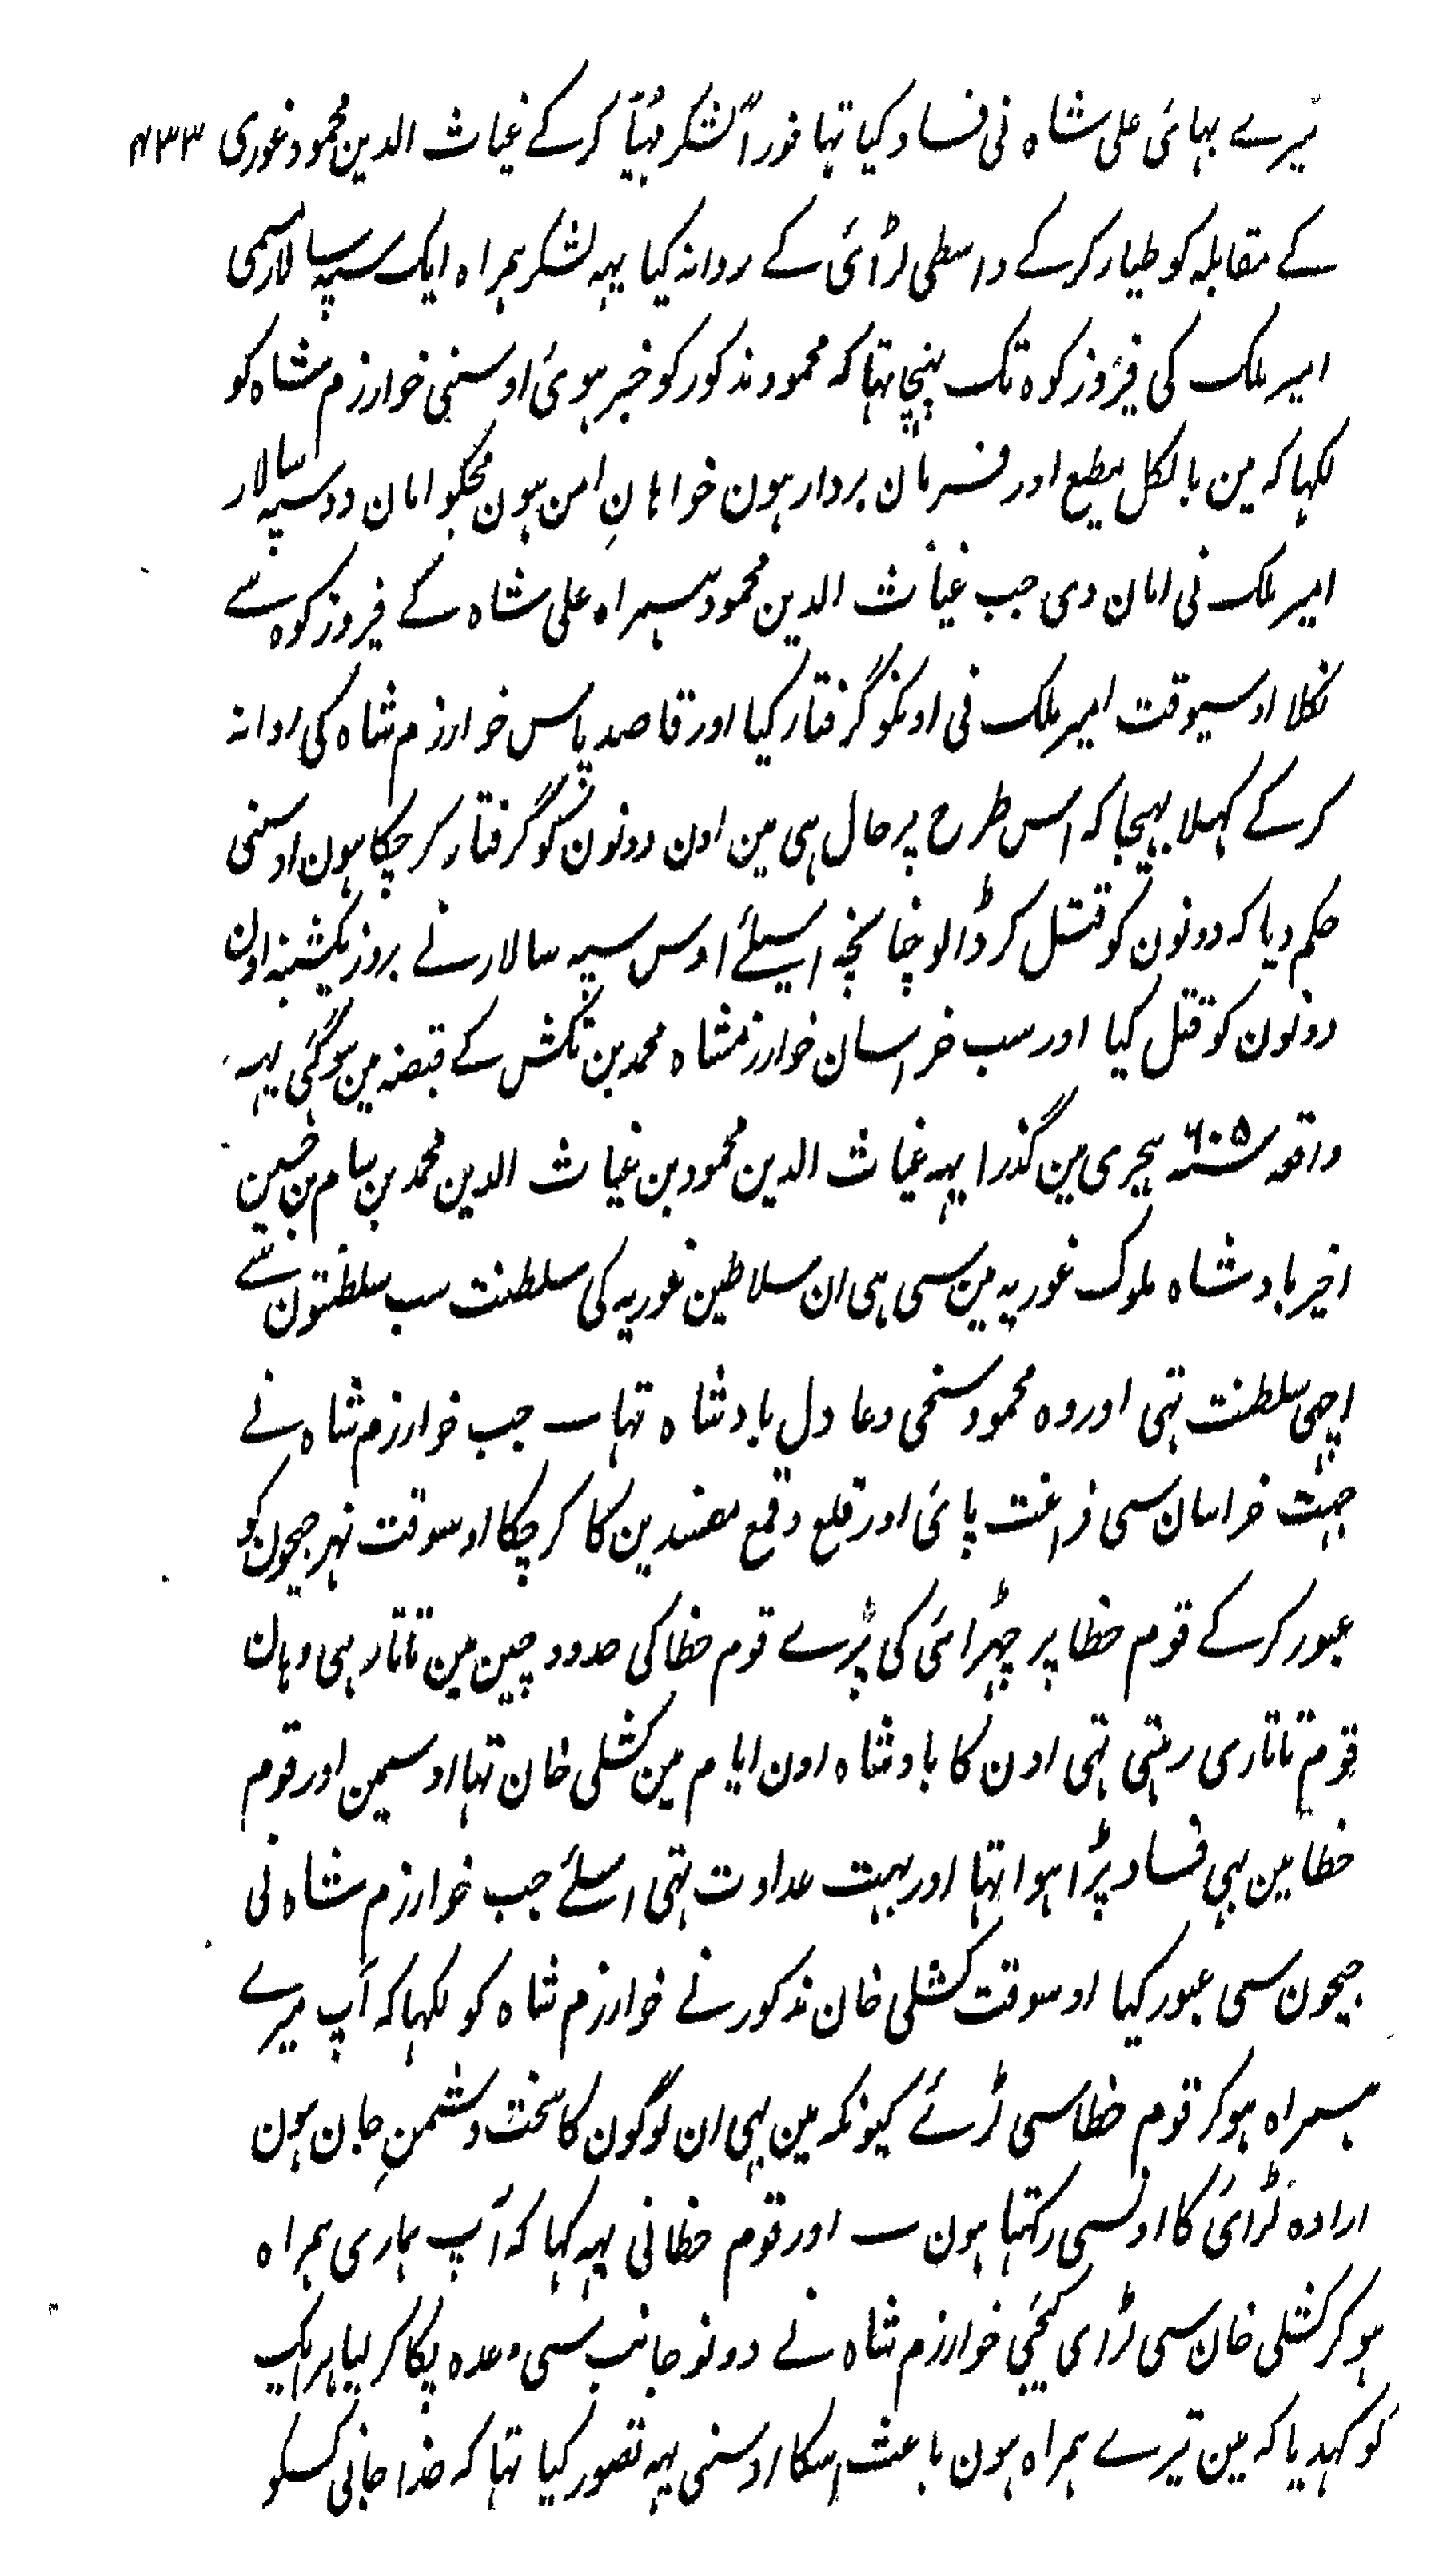 میرے بہائی علی شاہ نی فساد کیا تہا فوراً لشکر مہیّا کرکے غیاث الدین محمود غوری ۴۳۳
کے مقابلہ کو طیار کرکے واسطی لڑائی کے روانہ کیا یہہ لشکر ہمراہ ایک سپہ سالار مسمی
امیر ملک کی فیروز کوہ تک پہنچا تہا کہ محمود مذکور کو خبر ہوئی اوسنی خوارزم شاہ کو
لکہا کہ مین بالکل مطیع اور فرمان بردار ہون خواہانِ امن ہون مجکو امان دو سپہ سالار
امیر ملک نی امان دی جب غیاث الدین محمود ہمراہ علی شاہ کے فیروز کوہ سے
نکلا اوسیوقت امیر ملک نی اونکو گرفتار کیا اور قاصد پاس خوارزم شاہ کی روانہ
کرکے کہلا بہیجا کہ اس طرح پر حال ہی مین اون دونون کو گرفتار کر چکا ہون اوسنی
حکم دیا کہ دونون کو قتل کر ڈالو چنانچہ اسیلئے اوس سپہ سالار نے بروز یکشنبہ اون
دونون کو قتل کیا اور سب خراسان خوارزمشاہ محمد بن تکش کے قبضہ مین ہوگئی یہہ
واقعہ سنہ ۶۰۵ ہجری مین گذرا یہہ غیاث الدین محمود بن غیاث الدین محمد بن سام بن حسین
اخیر بادشاہ ملوک غوریہ مین سی ہی ان سلاطین غوریہ کی سلطنت سب سلطنتون سے
اچہی سلطنت تہی اور وہ محمود سخی و عادل بادشاہ تہا ــ جب خوارزم شاہ نے
جہت خراسان سی فراغت پائی اور قلع و قمع مفسدین کا کر چکا اوسوقت نہر جیحون کو
عبور کرکے قوم خطا پر چہڑائی کی پڑے قوم خطا کی حدود چین مین تاتار ہی وہان
قوم تاتاری رہتی تہی اون کا بادشاہ اون ایام مین کشلی خان تہا اوسمین اور قوم
خطا مین بہی فساد پڑا ہوا تہا اور بہت عداوت تہی اسلئے جب خوارزم شاہ نی
جیحون سی عبور کیا اوسوقت کشلی خان مذکور نے خوارزم شاہ کو لکہا کہ آپ میرے
ہمراہ ہوکر قوم خطا سی لڑئے کیونکہ مین بہی ان لوگون کا سخت دشمنِ جان ہون
ارادہ لڑائی کا اونسی رکہتا ہون ــ اور قوم خطا نی یہہ کہا کہ آپ ہماری ہمراہ
ہوکر کشلی خان سی لڑای کیجئی خوارزم شاہ نے دونو جانب سی وعدہ پکا کر لیا ہر ایک
کو کہدیا کہ مین تیرے ہمراہ ہون باعث اسکا اوسنی یہہ تصور کیا تہا کہ خدا جانی کسکو